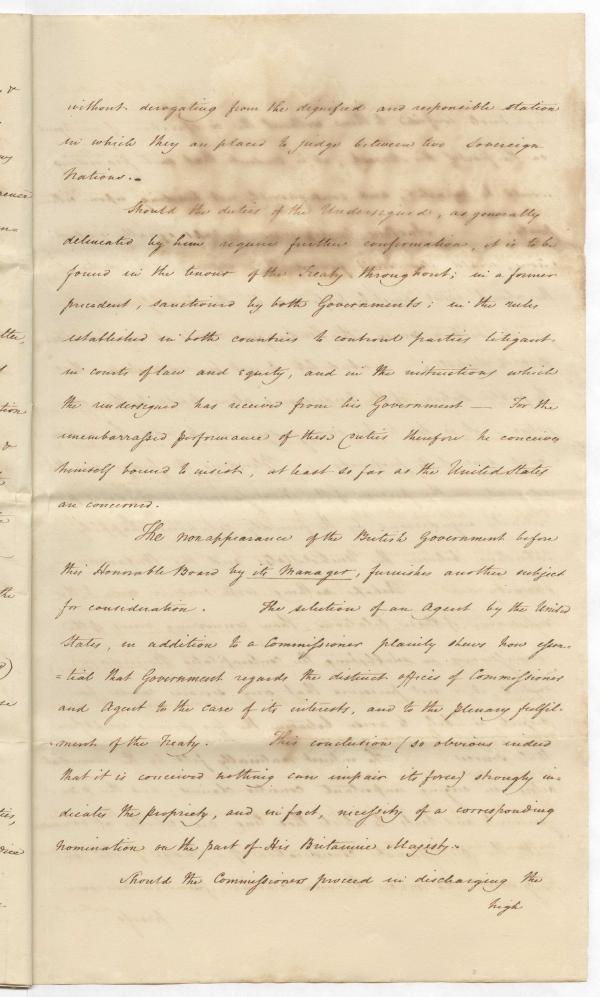 without derogating from the dignified and responsible station
in which they are placed to judge between two Sovereign
Nations.
Should the duties of the Undersigned, as generally
delineated by him require further confirmation, it is to be
found in the tenour of the Treaty throughout; in a former
precedent, sanctioned by both Governments; in the rules
established in both countries to controul parties litigant
in courts of law and Equity, and in the instructions which
the undersigned has received from his Government — For the
unembarrassed performance of these duties therefore he conceives
himself bound to insist, at least so far as the United States
are concerned.
The nonappearance of the British Government before
this Honorable Board by its Manager, furnishes another subject
for consideration. The selection of an Agent by the United
States, in addition to a Commissioner plainly shews how essen-
=tial that Government regards the distinct offices of Commissioner
and Agent to the care of its interests, and to the plenary fulfil-
ment of the Treaty. This conclusion (so obvious indeed
that it is conceived nothing can impair its force) strongly in-
dicates the propriety, and in fact, necessity of a corresponding
nomination on the part of His Britannic Majesty.
Should the Commissioners proceed in discharging the
high